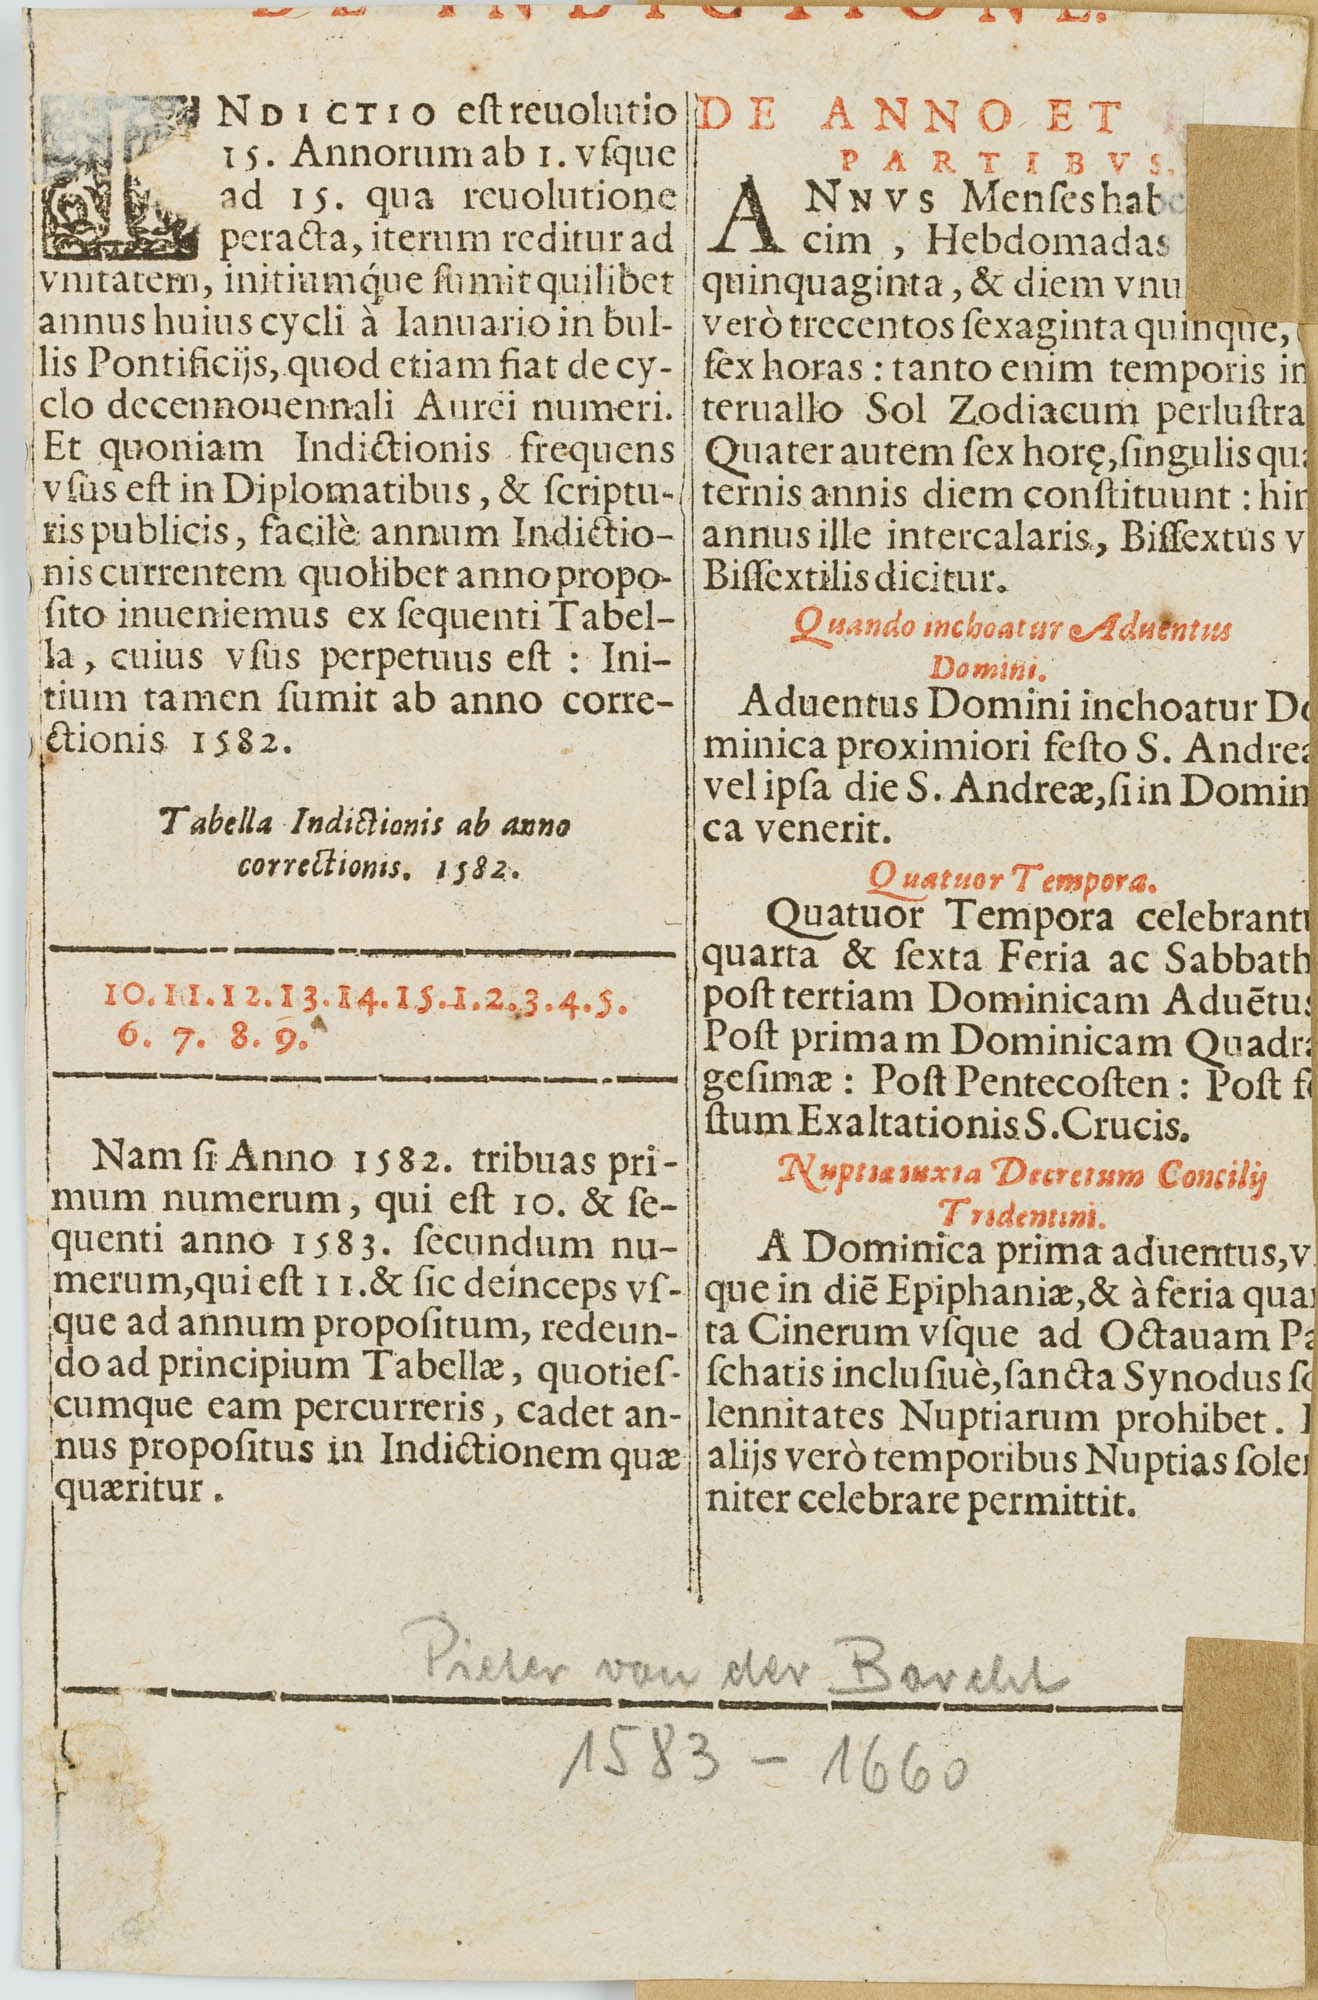 DE INDICTIONE.
INDICTIO est reuolutio
15. Annorum ab 1. vsque
ad 15. qua reuolutione
peracta, iterum reditur ad
vnitatem, initiumq́ue sumit quilibet
annus huius cycli à Ianuario in bul-
lis Pontificijs, quod etiam fiat de cy-
clo decennouennali Aurei numeri.
Et quoniam Indictionis frequens
vsus est in Diplomatibus, & scriptu-
ris publicis, facilè annum Indictio-
nis currentem quolibet anno propo-
sito inueniemus ex sequenti Tabel-
la, cuius vsus perpetuus est : Ini-
tium tamen sumit ab anno corre-
ctionis 1582.
Tabella Indictionis ab anno
correctionis. 1582.
10. 11. 12. 13. 14. 15. 1. 2. 3. 4. 5.
6. 7. 8. 9.
Nam si Anno 1582. tribuas pri-
mum numerum, qui est 10. & se-
quenti anno 1583. secundum nu-
merum, qui est 11. & sic deinceps vs-
que ad annum propositum, redeun-
do ad principium Tabellæ, quoties-
cumque eam percurreris, cadet an-
nus propositus in Indictionem quæ
quæritur.
DE ANNO ET
PARTIBVS.
ANNVS Menses hab
cim, Hebdomadas
quinquaginta, & diem vnu
verò trecentos sexaginta quinque,
sex horas : tanto enim temporis in
teruallo Sol Zodiacum perlustra
Quater autem sex horę, singulis qua
ternis annis diem constituunt : hin
annus ille intercalaris, Bissextus v
Bissextilis dicitur.
Quando inchoatur Aduentus
Domini.
Aduentus Domini inchoatur Do
minica proximiori festo S. Andrea
vel ipsa die S. Andreæ, si in Domin
ca venerit.
Quatuor Tempora.
Quatuor Tempora celebrantu
quarta & sexta Feria ac Sabbath
post tertiam Dominicam Aduẽtus
Post primam Dominicam Quadra
gesimæ : Post Pentecosten : Post fe
stum Exaltationis S. Crucis.
Nuptiæ iuxta Decretum Concilij
Tridentini.
A Dominica prima aduentus, v
que in diẽ Epiphaniæ, & à feria quar
ta Cinerum vsque ad Octauam Pa
schatis inclusiuè, sancta Synodus so
lennitates Nuptiarum prohibet.
alijs verò temporibus Nuptias solen
niter celebrare permittit.
Pieter van der Borcht
1583 – 1660